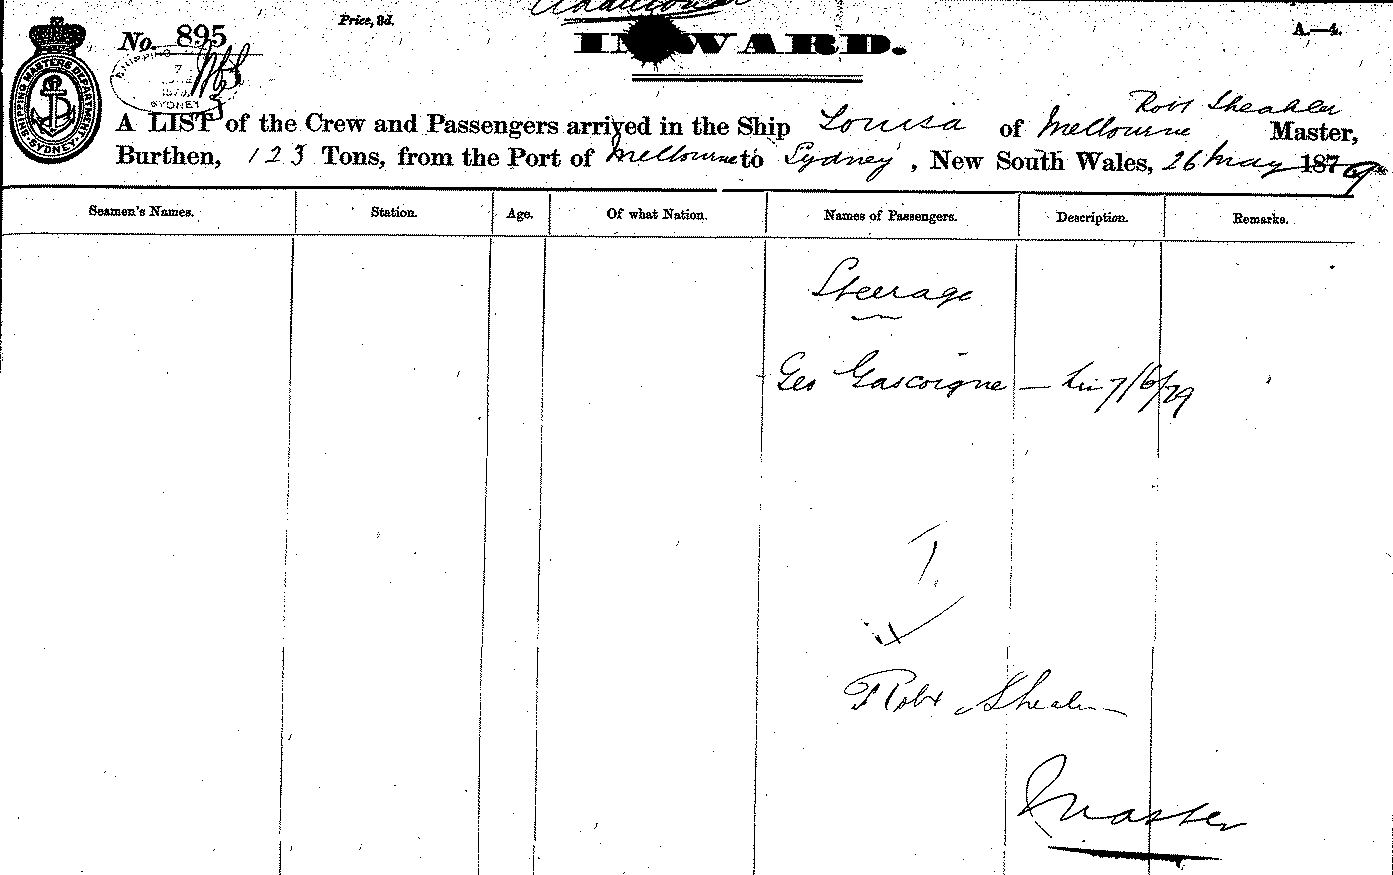 Additional
Price, 3d.
No. 895
INWARD.
A.—4.
SHIPPING MASTERS DEPARTMENT SYDNEY
SHIPPING
7
SYDNEY
A LIST of the Crew and Passengers arrived in the Ship Louisa of Melbourne Robt Sheahen Master,
Burthen, 123 Tons, from the Port of Melbourne to Sydney, New South Wales, 26 May 1879
Seamen's Names. Station. Age. Of what Nation. Names of Passengers. Description. Remarks.
Steerage
Geo Gascoigne — 7/6/79
1
Robt
Master